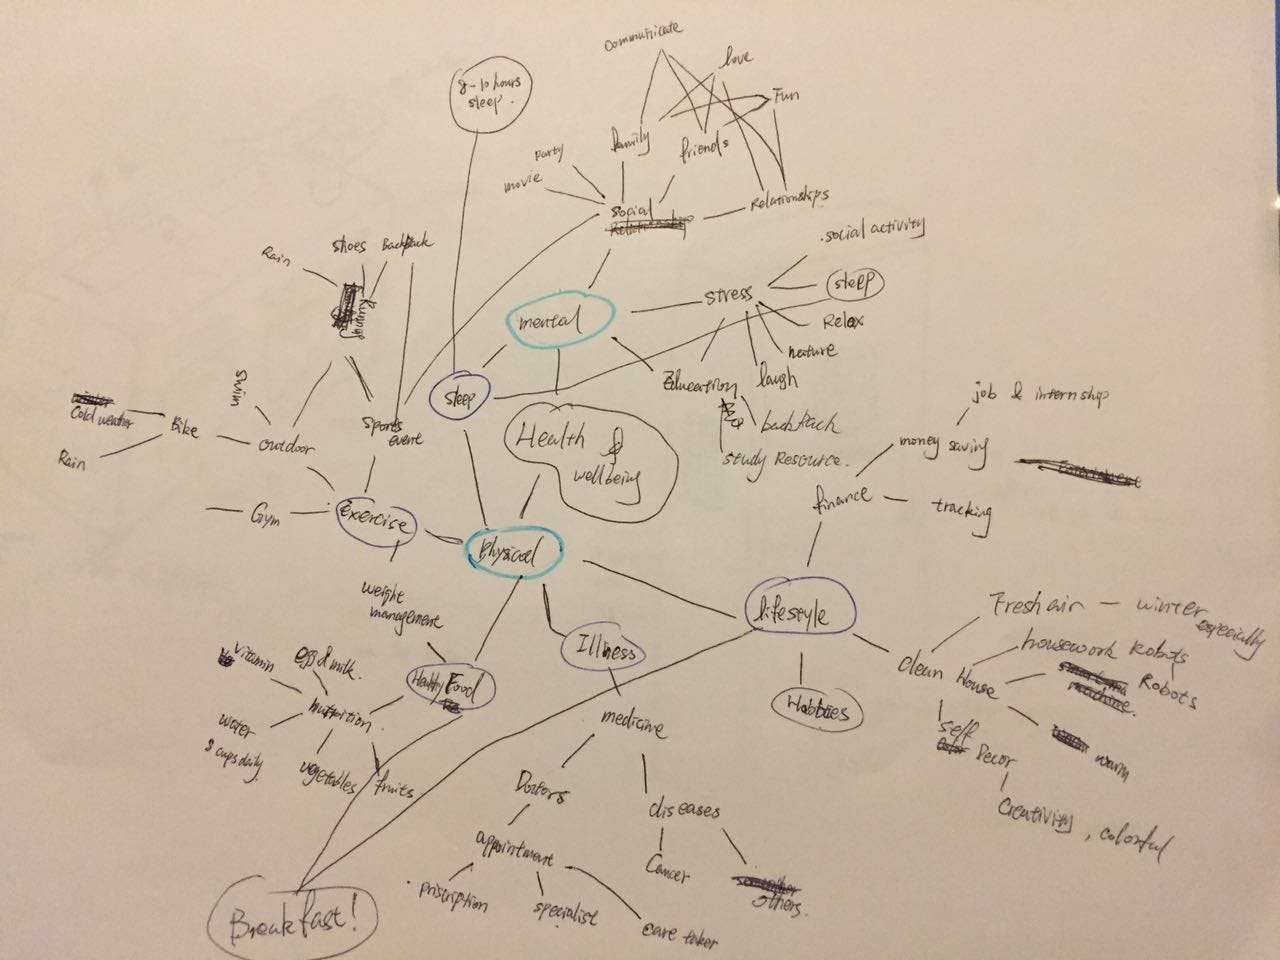 communicate
love
Fun
8-10 hours
sleep.
family
friends
party
movie
social
Relationship
Relationships
.social activity
shoes
Backpack
Rain
Runing
stress
sleep
Relax
nature
laugh
mental
Education
backpack
study Resource.
sleep
Health &
wellbeing
swim
Cold weather
Bike
Rain
outdoor
sports
event
job & internship
money saving
finance
tracking
Gym
exercise
physical
weight
management
lifestyle
Illness
Hobbies
Fresh air - winter
especially
housework Robots
Robots
clean House
warm
self
Decor
Creativity, colorful
vitamin
egg & milk.
Healthy Food
nuttrition
water
8 cups daily
vegetables
fruits
medicine
Doctors
diseases
appointment
Cancer
others.
priscription
specialist
care taker
Breakfast!